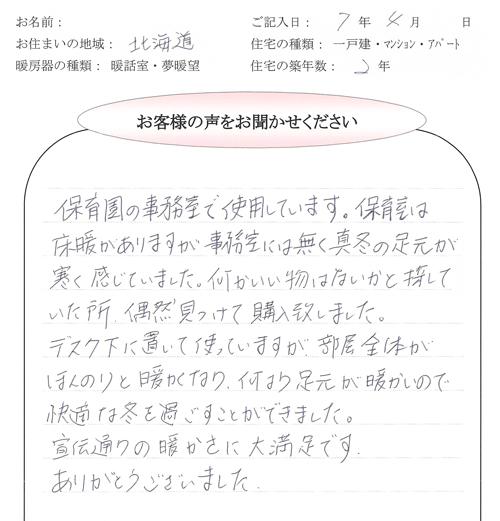 お名前：
ご記入日： 7 年 4 月 日
お住まいの地域： 北海道
住宅の種類： 一戸建・マンション・アパート
暖房器の種類： 暖話室・夢暖望
住宅の築年数： 2 年
お客様の声をお聞かせください
保育園の事務室で使用しています。保育室は
床暖がありますが事務室には無く真冬の足元が
寒く感じていました。何かいい物はないかと探して
いた所、偶然見つけて購入致しました。
デスク下に置いて使っていますが、部屋全体が
ほんのりと暖かくなり、何より足元が暖かいので
快適な冬を過ごすことができました。
宣伝通りの暖かさに大満足です。
ありがとうございました。